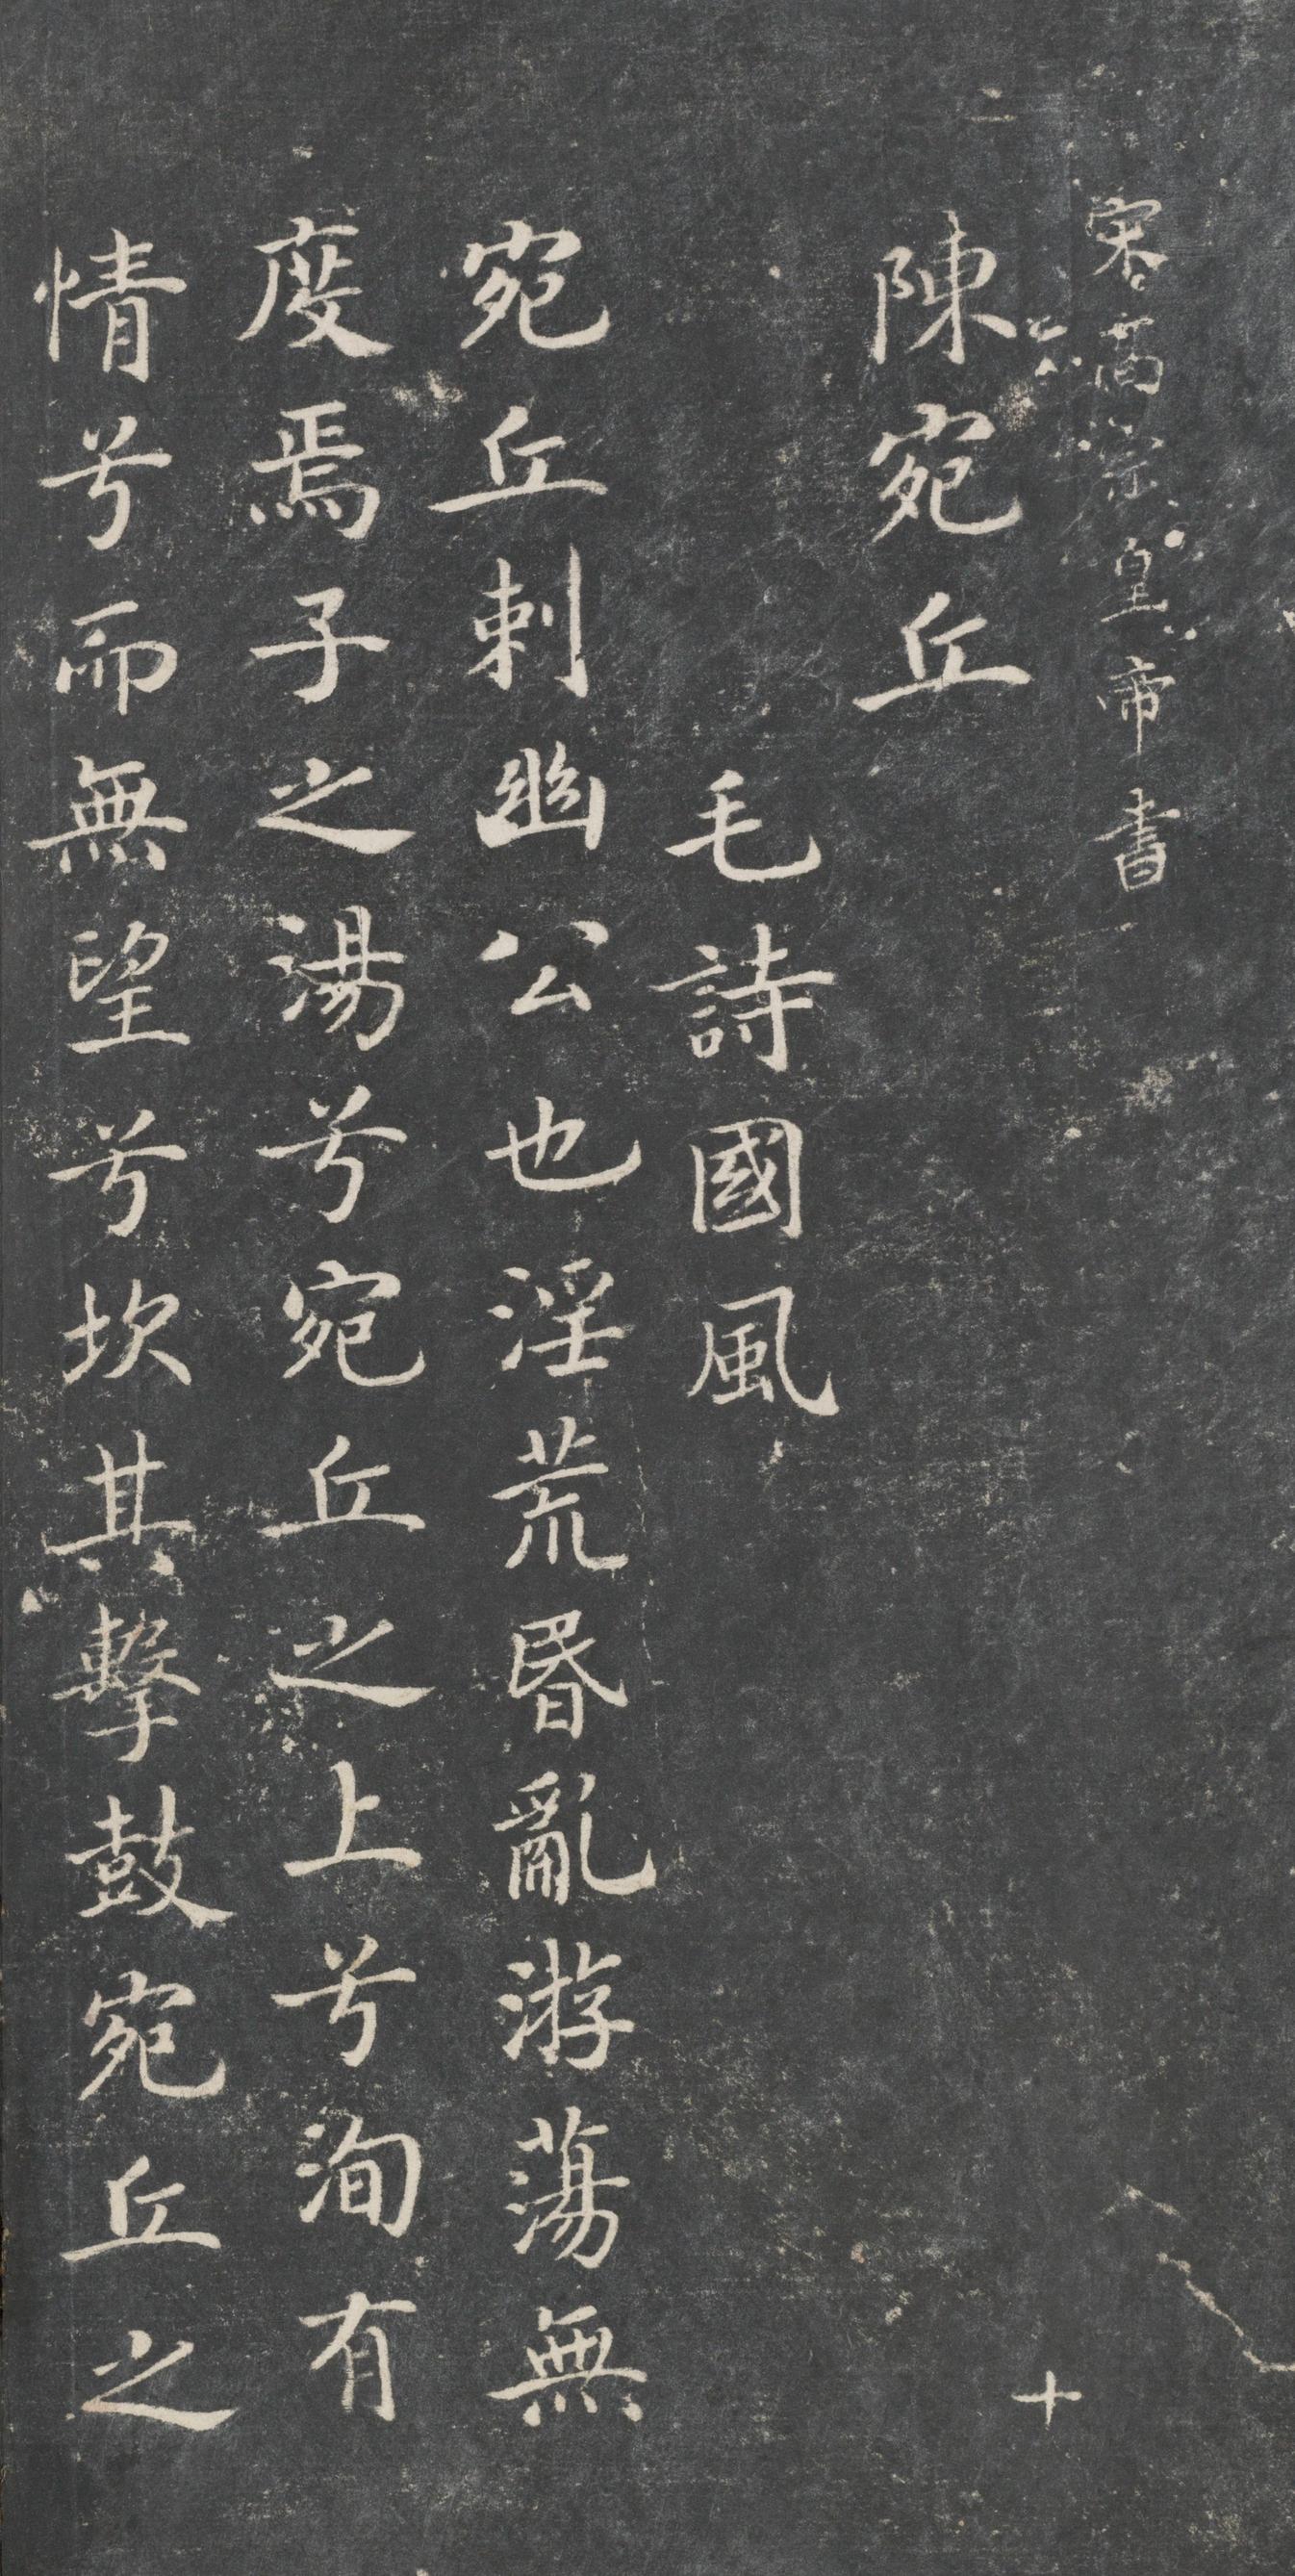 宋高宗皇帝書
十
陳宛丘
毛詩國風
宛丘刺幽公也淫荒昬亂游蕩無
度焉子之湯兮宛丘之上兮洵有
情兮而無望兮坎其擊鼓宛丘之